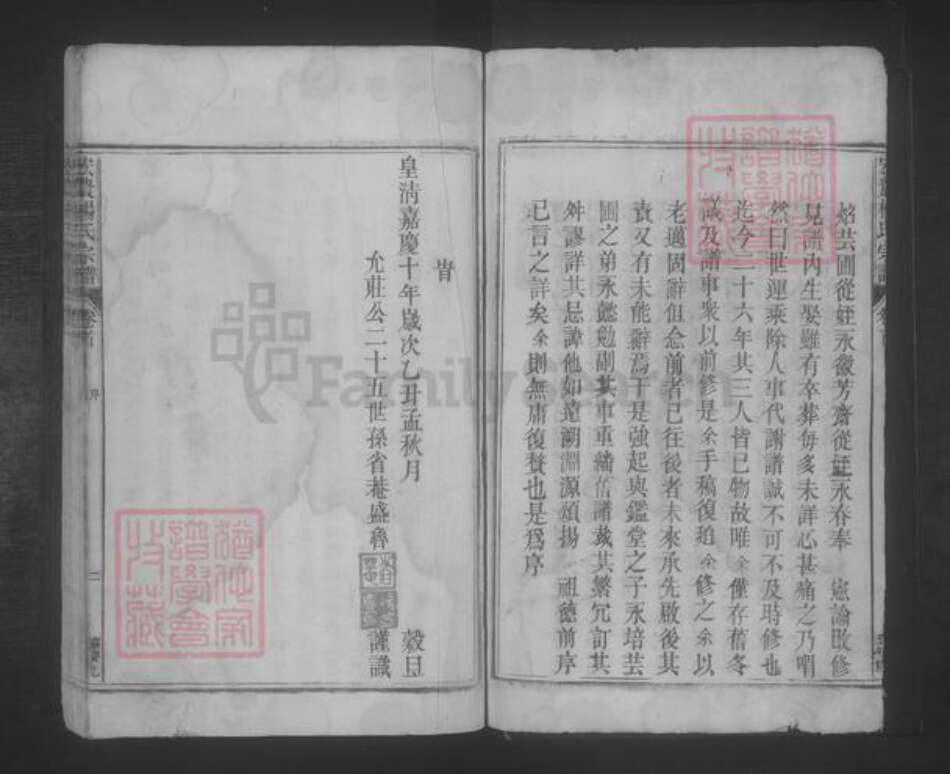 烙芸圃從姪永徽芳齋從姪永春奉 憲諭敃修
見譜內生娶雖有卒葬每多未詳心甚痛之乃喟
然曰世運乘除人事代謝譜誠不可不及時修也
迄今二十六年其三人皆已物故唯余僅存舊冬
議及譜事衆以前修是余手稿復追余修之余以
老邁固辭但念前者已往後者未來承先啟後其
責又有未能辭焉于是強起與鑑堂之子永培芸
圃之弟永懿勉副其事重繙舊譜裁其繁冗訂其
舛謬詳其忌諱他如遠溯淵源頌揚 祖德前序
已言之詳矣余則無庸復贅也是爲序
旹
皇淸嘉慶十年歲次乙丑孟秋月 穀旦
允莊公二十五世孫省菴盛魯 謹識
氏宗譜
二
FamilySearch